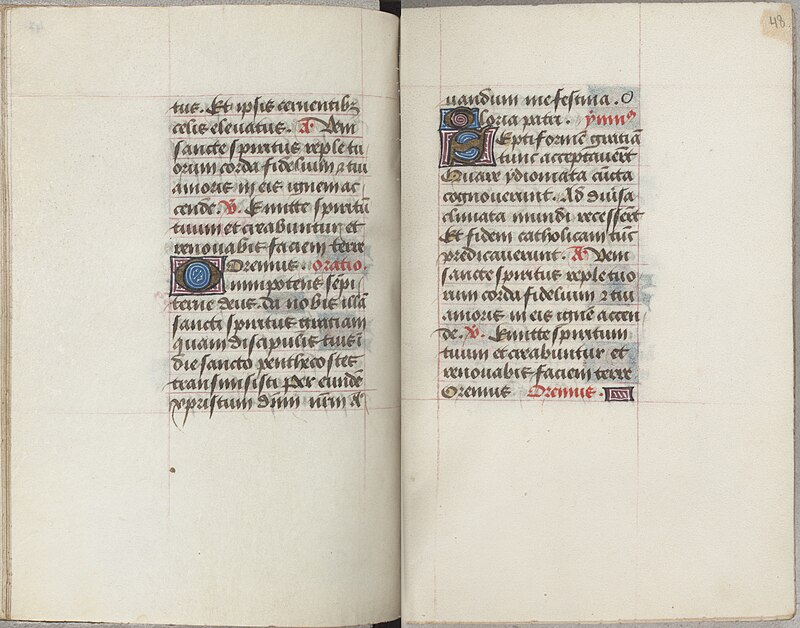 tus. Et ipsis cernentibz
celis eleuatus. A. Veni
sancte spiritus reple tu
orum corda fidelium ⁊ tui
amoris in eis ignem ac
cende. V. Emitte spiritū
tuum et creabuntur et
renouabis faciem terre
Oremus. oratio.
Omnipotens sēpi
terne deus. da nobis illā
sancti spiritus gratiam
quam discipulis tuis ī
die sancto penthecostes
transmisisti Per eundē
xpristum dūm nr̄m A
48
uandum me festina. O
Gloria patri. ymnꝰ
Septiformē gratiā
tunc acceptauerūt
Quare ydiomata cūcta
cognouerunt. Ad diuisa
climata mundi recesserūt
Et fidem catholicam tūc
predicauerunt. A Veni
sancte spiritus reple tuo
rum corda fidelium ⁊ tui
amoris in eis igne accen
de. V. Emitte spiritum
tuum et creabuntur et
renouabis faciem terre
Oremus Oremus.